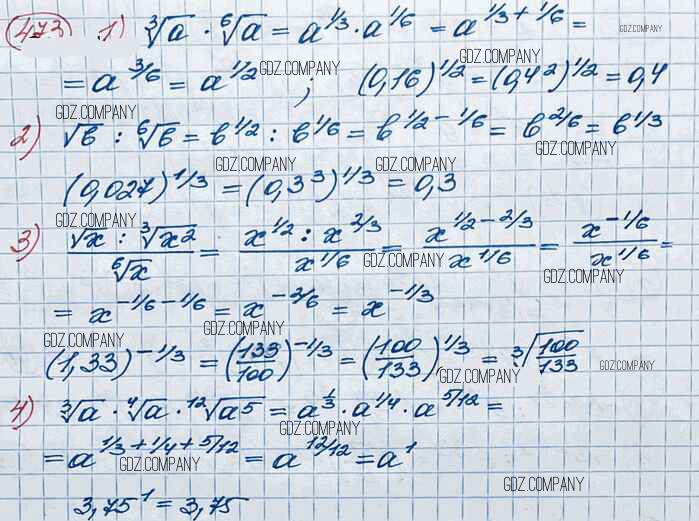 473 1) ∛a · ⁶√a = a^1/3 · a^1/6 = a^1/3 + 1/6 = GDZ.COMPANY
= a^3/6 = a^1/2 GDZ.COMPANY ; (0,16)^1/2 = (0,4²)^1/2 = 0,4 GDZ.COMPANY
GDZ.COMPANY
2) √в : ⁶√в = в^1/2 : в^1/6 = в^1/2 - 1/6 = в^2/6 = в^1/3
GDZ.COMPANY GDZ.COMPANY GDZ.COMPANY
(0,027)^1/3 = (0,3³)^1/3 = 0,3
GDZ.COMPANY GDZ.COMPANY
3) (√x : ∛x²)/(⁶√x) = (x^1/2 : x^2/3)/(x^1/6) = (x^1/2 - 2/3)/(x^1/6) = (x^-1/6)/(x^1/6) =
GDZ.COMPANY GDZ.COMPANY
= x^-1/6 - 1/6 = x^-2/6 = x^-1/3
GDZ.COMPANY GDZ.COMPANY
(1,33)^-1/3 = (133/100)^-1/3 = (100/133)^1/3 = ∛(100/133) GDZ.COMPANY
GDZ.COMPANY
4) ∛a · ⁴√a · ¹²√a⁵ = a^1/3 · a^1/4 · a^5/12 =
GDZ.COMPANY
= a^1/3 + 1/4 + 5/12 = a^12/12 = a^1
GDZ.COMPANY
3,75^1 = 3,75 GDZ.COMPANY